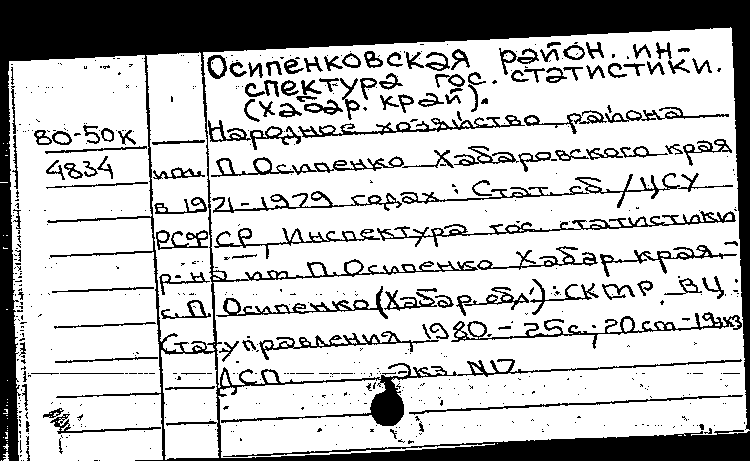 Осипенковская район. ин-
спектура гос. статистики.
(Хабар. край).
ВО-50К Народное хозяйство района
4834 им. П. Осипенко Хабаровского края
в 1971-1979 годах : Стат. сб. / ЦСУ
РСФСР, Инспектура гос. статистики
р-на им. П. Осипенко Хабар. края. -
с. П. Осипенко (Хабар. обл.) : СКТИР, ВЦ :
Стат. управления, 1980. - 25 с. ; 20 см - 19 экз
ДСП. Экз. N17.